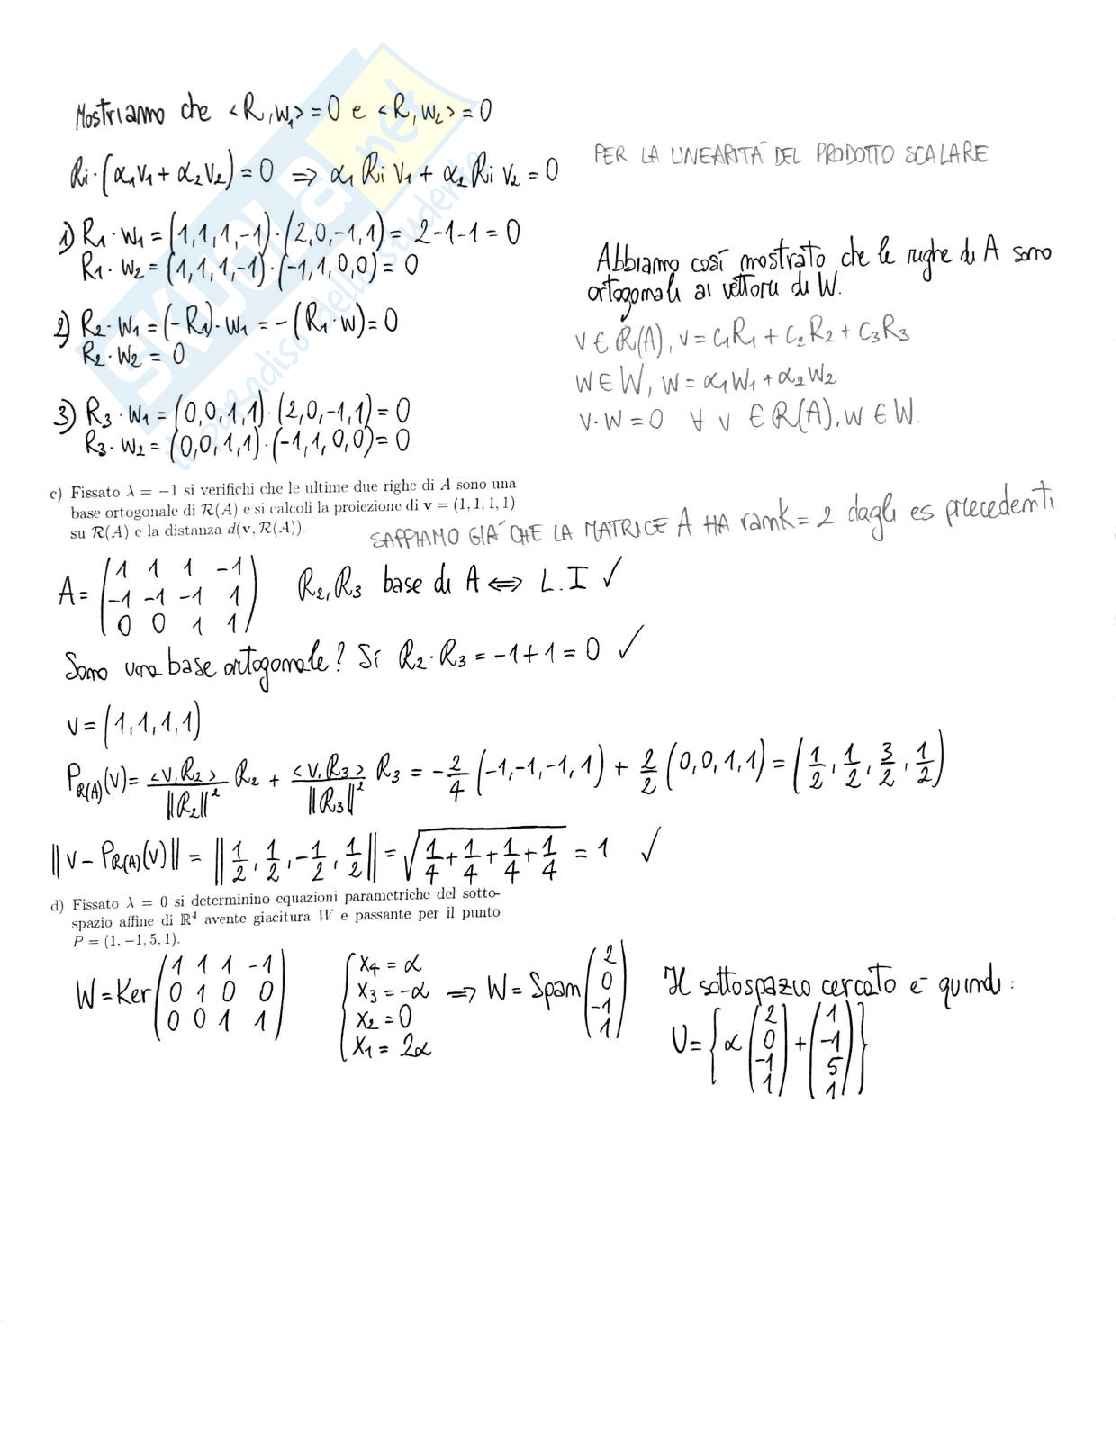 Mostriamo che <R,w₁> = 0 e <R,w₂> = 0
Ri·(α₁v₁ + α₂v₂) = 0 ⇒ α₁ Ri v₁ + α₂ Ri v₂ = 0
PER LA LINEARITÀ DEL PRODOTTO SCALARE
1) R₁·w₁ = (1,1,1,-1)·(2,0,-1,1) = 2-1-1 = 0
R₁·w₂ = (1,1,1,-1)·(-1,1,0,0) = 0
2) R₂·w₁ = (-R₁)·w₁ = -(R₁·w) = 0
R₂·w₂ = 0
3) R₃·w₁ = (0,0,1,1)·(2,0,-1,1) = 0
R₃·w₂ = (0,0,1,1)·(-1,1,0,0) = 0
Abbiamo così mostrato che le righe di A sono
ortogonali ai vettori di W.
v ∈ R(A), v = C₁R₁ + C₂R₂ + C₃R₃
w ∈ W, w = α₁w₁ + α₂w₂
v·w = 0 ∀ v ∈ R(A), w ∈ W.
c) Fissato λ = −1 si verifichi che le ultime due righe di A sono una
base ortogonale di R(A) e si calcoli la proiezione di v = (1,1,1,1)
su R(A) e la distanza d(v,R(A))
SAPPIAMO GIÀ CHE LA MATRICE A HA rank = 2 dagli es precedenti
A = (1 1 1 -1
-1 -1 -1 1
0 0 1 1)
R₂,R₃ base di A ⇔ L.I ✓
Sono una base ortogonale? Sì R₂·R₃ = -1+1 = 0 ✓
v = (1,1,1,1)
P_R(A)(v) = <v,R₂>/‖R₂‖² R₂ + <v,R₃>/‖R₃‖² R₃ = -2/4 (-1,-1,-1,1) + 2/2 (0,0,1,1) = (1/2, 1/2, 3/2, 1/2)
‖v - P_R(A)(v)‖ = ‖1/2, 1/2, -1/2, 1/2‖ = √(1/4 + 1/4 + 1/4 + 1/4) = 1 ✓
d) Fissato λ = 0 si determinino equazioni parametriche del sotto-
spazio affine di ℝ⁴ avente giacitura W e passante per il punto
P = (1,−1,5,1).
W = Ker (1 1 1 -1
0 1 0 0
0 0 1 1)
{x₄ = α
x₃ = -α
x₂ = 0
x₁ = 2α
⇒ W = Span (2
0
-1
1)
Il sottospazio cercato è quindi:
U = {α (2 0 -1 1) + (1 -1 5 1)}